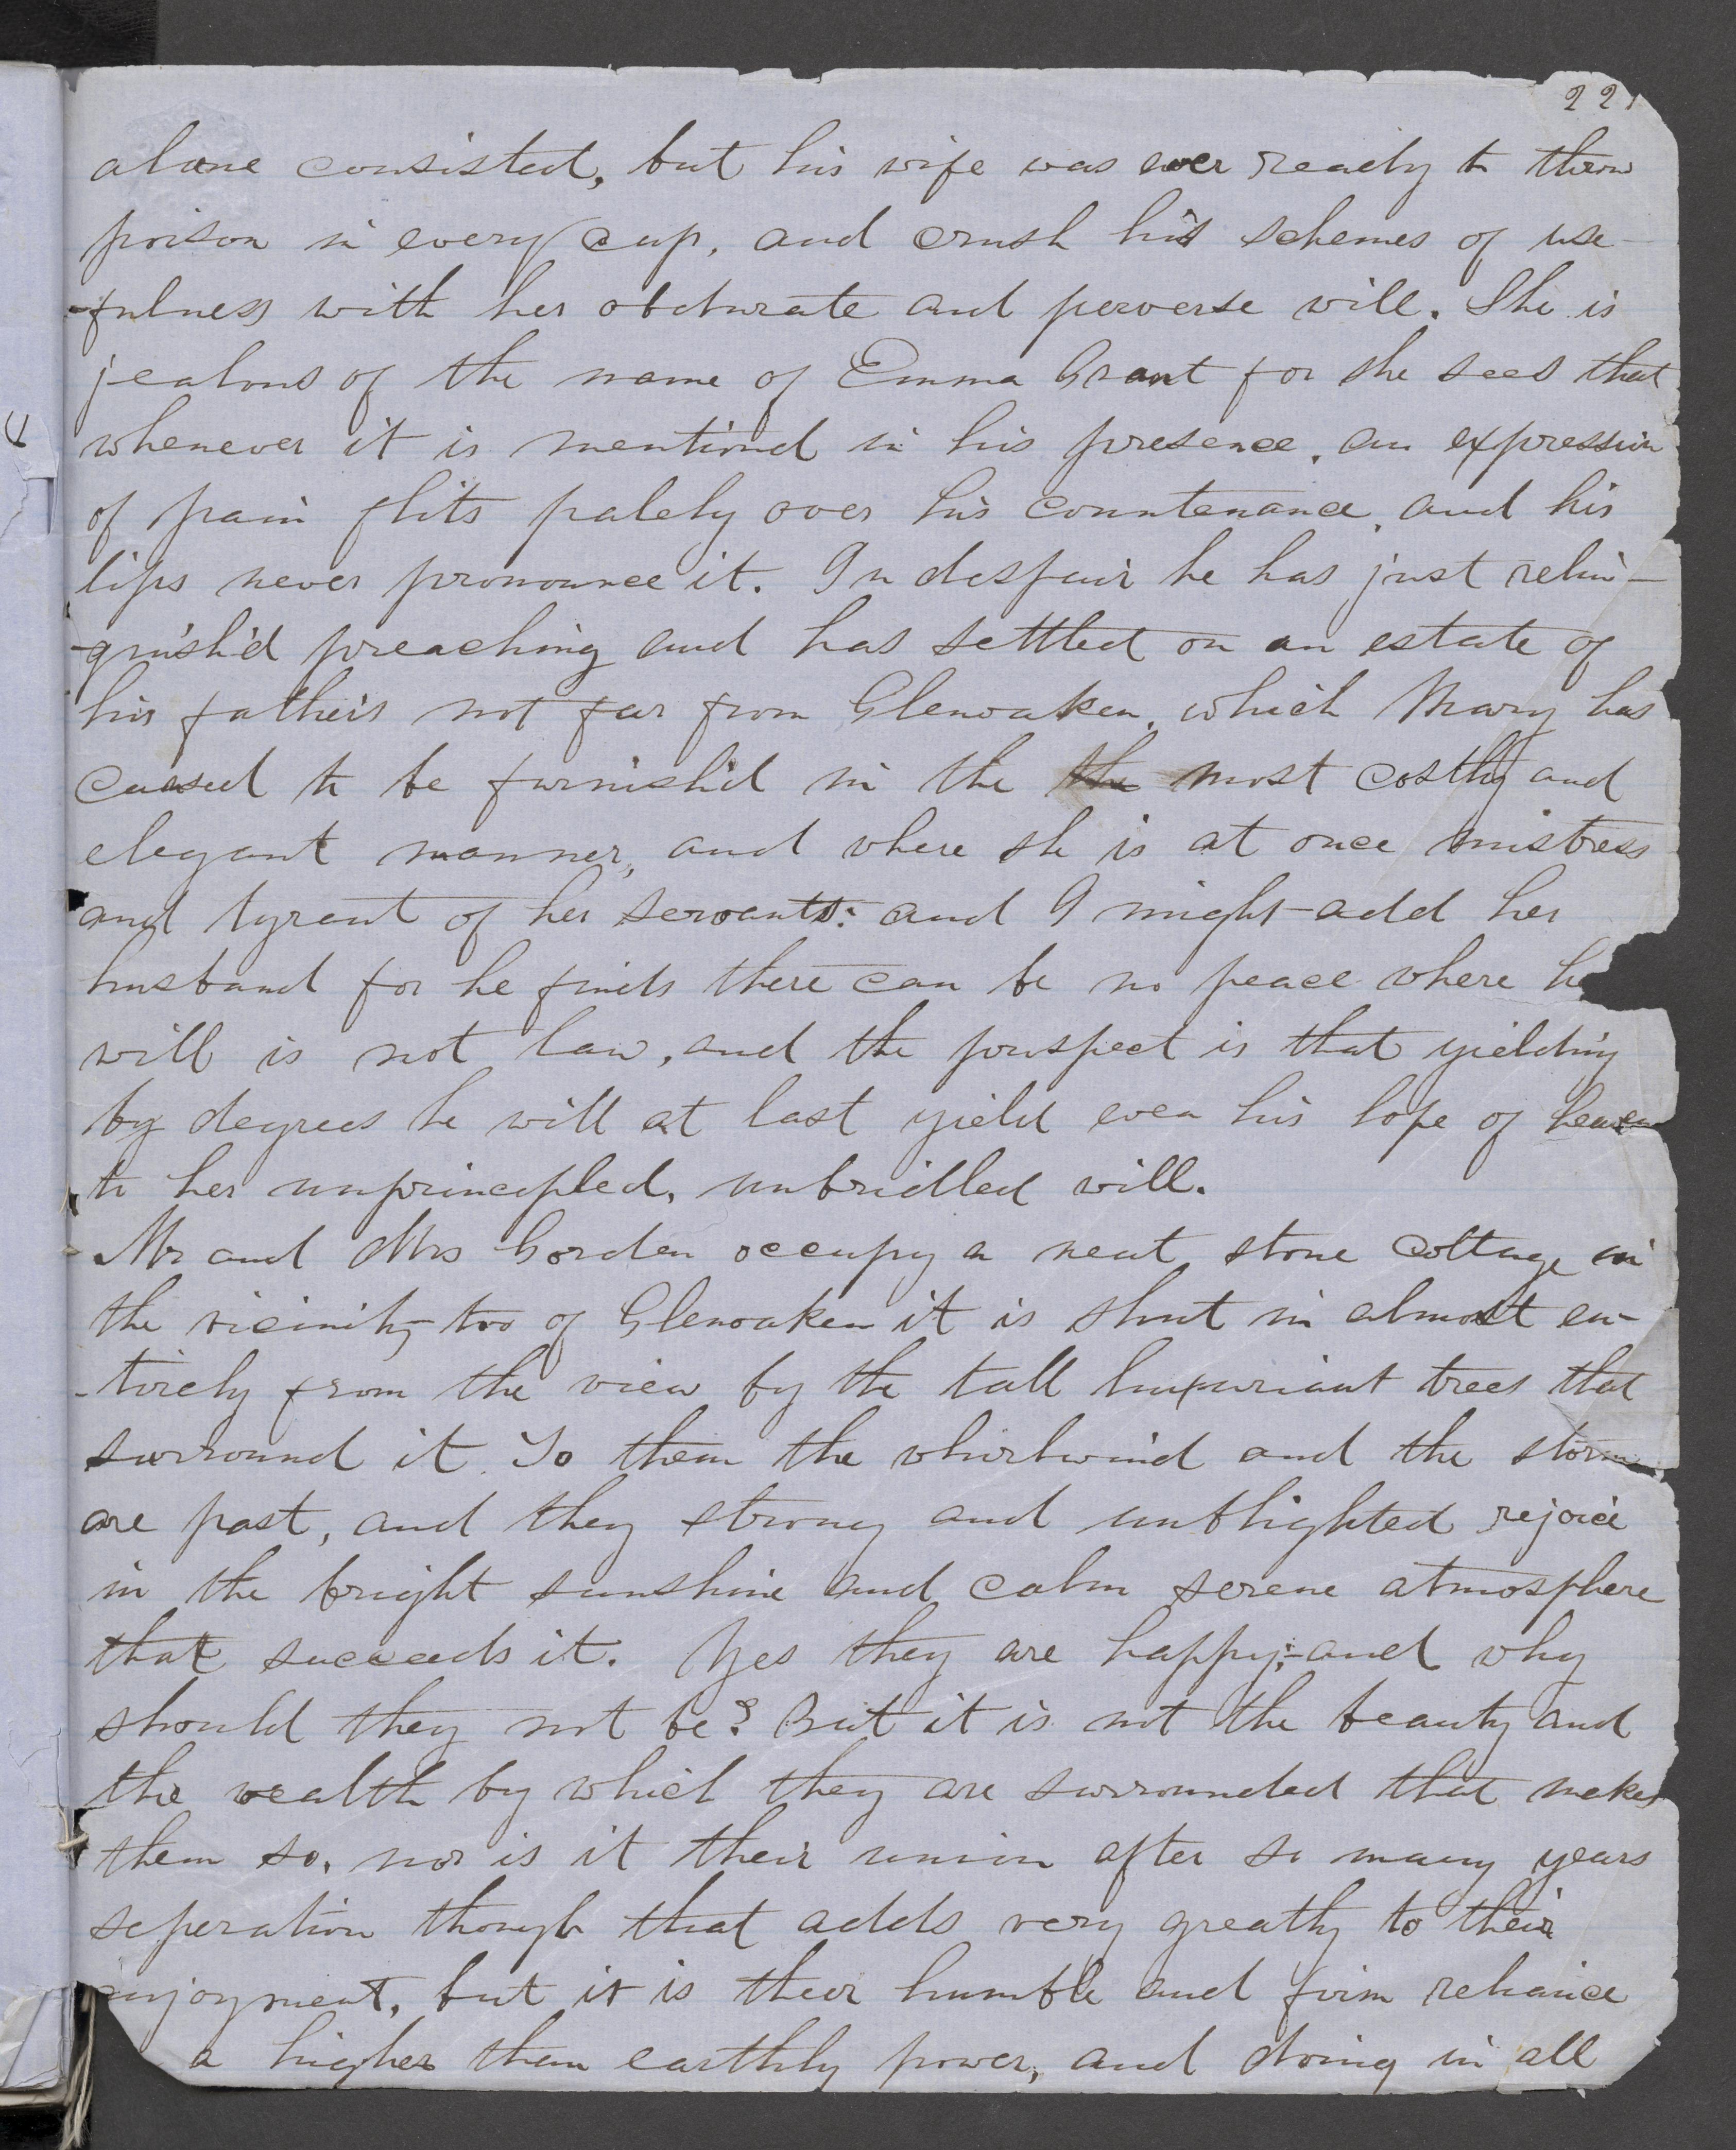 221
alone consisted, but his wife was ever ready to throw
poison in every cup, and crush his schemes of use-
-fulness with her obdurate and perverse will. She is
jealous of the name of Emma Grant for she sees that
whenever it is mentiond in his presence, an expression
of pain flits palely over his countenance, and his
lips never pronounce it. In despair he has just relin-
-quish'd preaching and has settled on an estate of
his father's not far from Glenoaken, which Mary has
caused to be furnish'd in the the most costly and
elegant manner, and where she is at once mistress
and tyrant of her servants: and I might add her
husband for he finds there can be no peace where he
will is not law, and the prospect is that yielding
by degrees he will at last yield even his hope of heaven
to her unprincepled, unbridled will.
Mr and Mrs Gorden occupy a neat stone cottage in
the vicinity too of Glenoaken it is shut in almost en-
-tirely from the view by the tall luxuriant trees that
surround it. To them the whirlwind and the storm
are past, and they strong and unblighted rejoice
in the bright sunshine and calm serene atmosphere
that succeeds it. Yes they are happy;-and why
should they not be? But it is not the beauty and
the wealth by which they are surrounded that makes
them so, nor is it their union after so many years
seperation though that adds very greatly to their
enjoyment, but it is their humble and firm reliance
a higher than earthly power, and doing in all